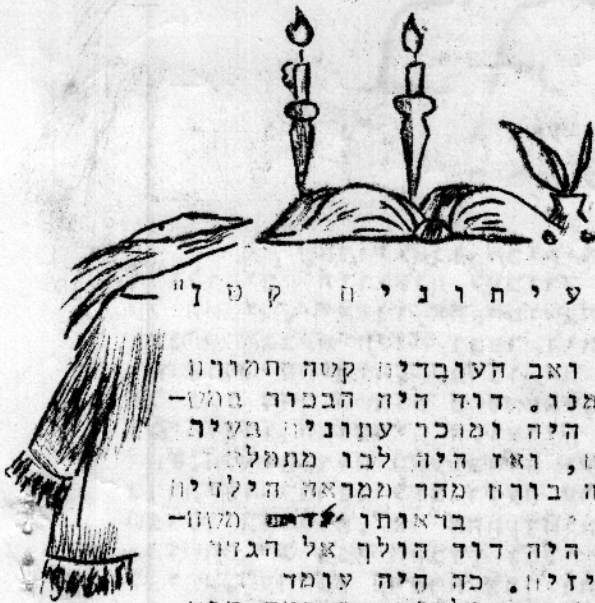 עיתונים קטן"
ואב העובדים קשה תמורת
מנו. דוד היה הבכור במש-
היה ומוכר עתונים בעיר
ואז היה לבו מתמלא
בורח מהר ממראה הילדים
בראותו משח-
היה דוד הולך אל הגדר
כה היה עומד